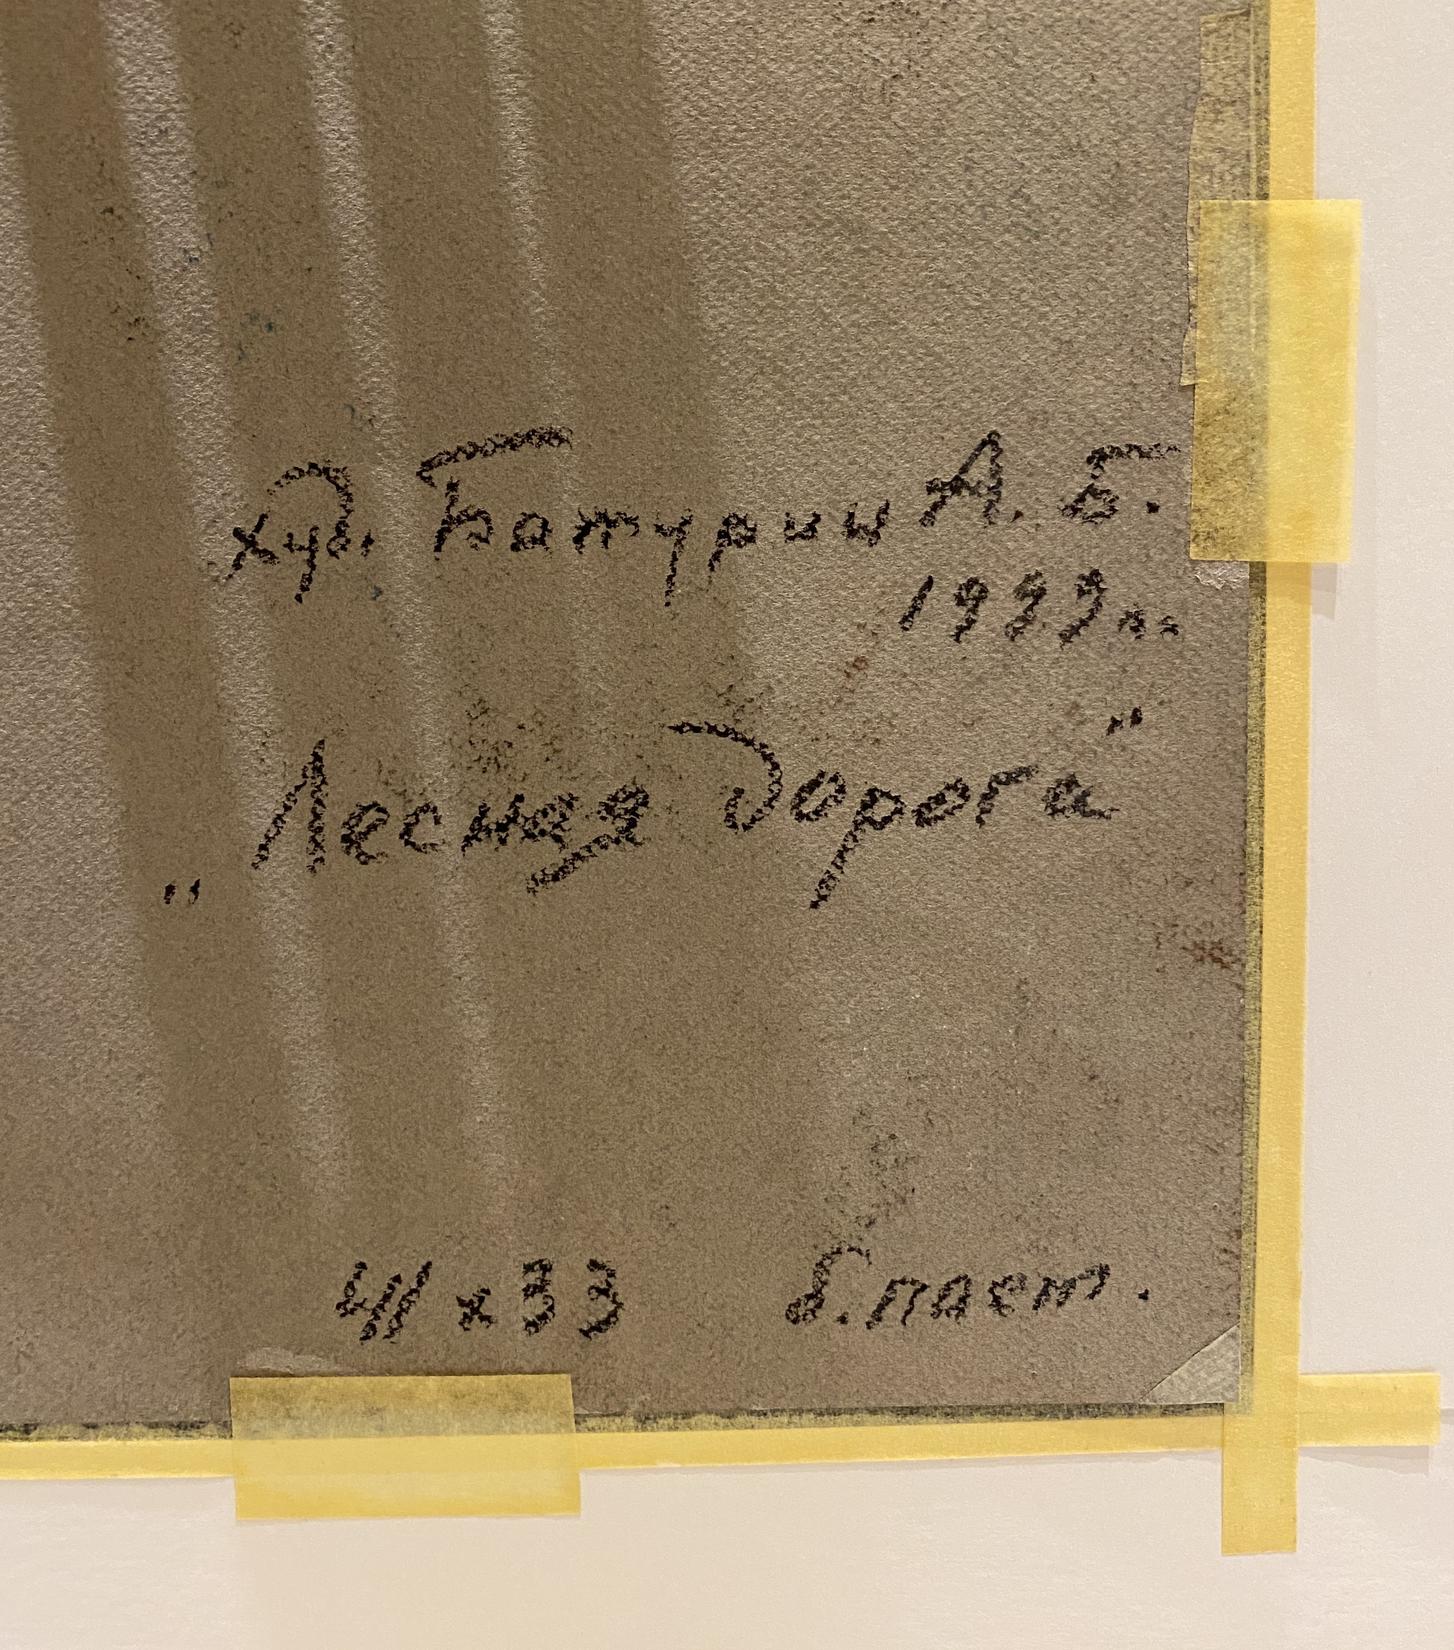 худ. Батурин А. Б.
1999 г.
„Лесная дорога"
41 x 33 б. паст.